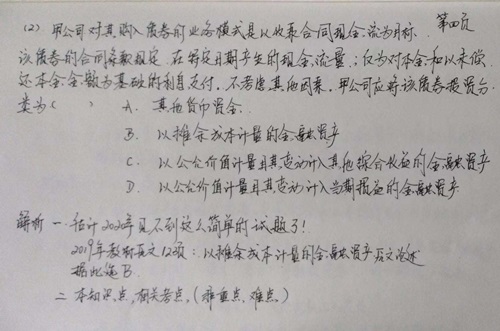 第四页
(2) 甲公司对其购入债券的业务模式是以收取合同现金流为目标.
该债券的合同条款规定.在特定日期产生的现金流量;仅为对本金和以未偿
还本金金额为基础的利息支付,不考虑其他因素,甲公司应将该债券投资分
类为( ) A. 其他货币资金.
B. 以摊余成本计量的金融资产
C. 以公允价值计量且其变动计入其他综合收益的金融资产
D. 以公允价值计量且其变动计入当期损益的金融资产
解析 一 估计2020年见不到这么简单的试题了!
2019年教材原文12项:以摊余成本计量的金融资产原文论述
据此选B.
二 本知识点,相关考点.(难重点.难点.)